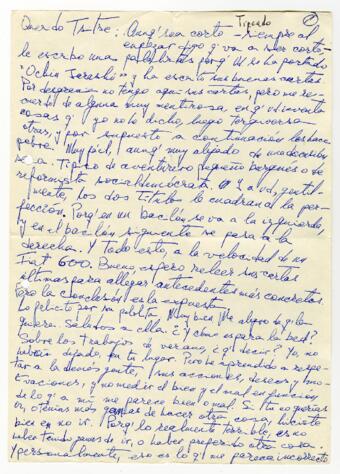 Tipeado
1
Querido Tristre: Aunq' sea corto - siempre al
empezar digo q' va a ser corto-
le escribo una
"
y la escribo sus buenas cartas.
Por desgracia no tengo aquí sus cartas, pero me re-
cuerdo de alguna muy mentirosa, en q' ud inventa
cosas q' yo no le he dicho, luego tergiversa
otras, y por supuesto a continuación las hace
polvo. Muy fácil, aunq' muy alejado de una decente
Típico de aventurero pequeño burgués o de
reformista socialdemócrata. A ud, gentil-
mente, los dos títulos le cuadran a la per-
fección. Porq' en un bacilón se va a la izquierda,
y en el bacilón siguiente se pasa a la
derecha. Y todo esto, a la velocidad de un
Fiat 600. Bueno, espero releer sus cartas
últimas para allegar antecedentes más concretos.
Pero la conclusión es la expuesta.
Lo felicito por su polola. Muy bien. Me alegro de q' lo
quiera. Saludos a ella. ¿Y cómo
Sobre los trabajos de verano, ¿q' decir? Yo, no
habría dejado, en tu lugar. Pero he aprendido a respe-
tar a la demás gente, sus acciones, deseos y mo-
tivaciones, y no medir el bien y el mal en función
de lo q' a mí me parece bien o mal. Si tú no querías
ir, o tenías más ganas de hacer otra cosa, hiciste
bien en no ir. Porq' lo realmente terrible, es no
haber tenido ganas de ir, o haber preferido otra cosa.
Y personalmente, eso es lo q' me parece incorrecto